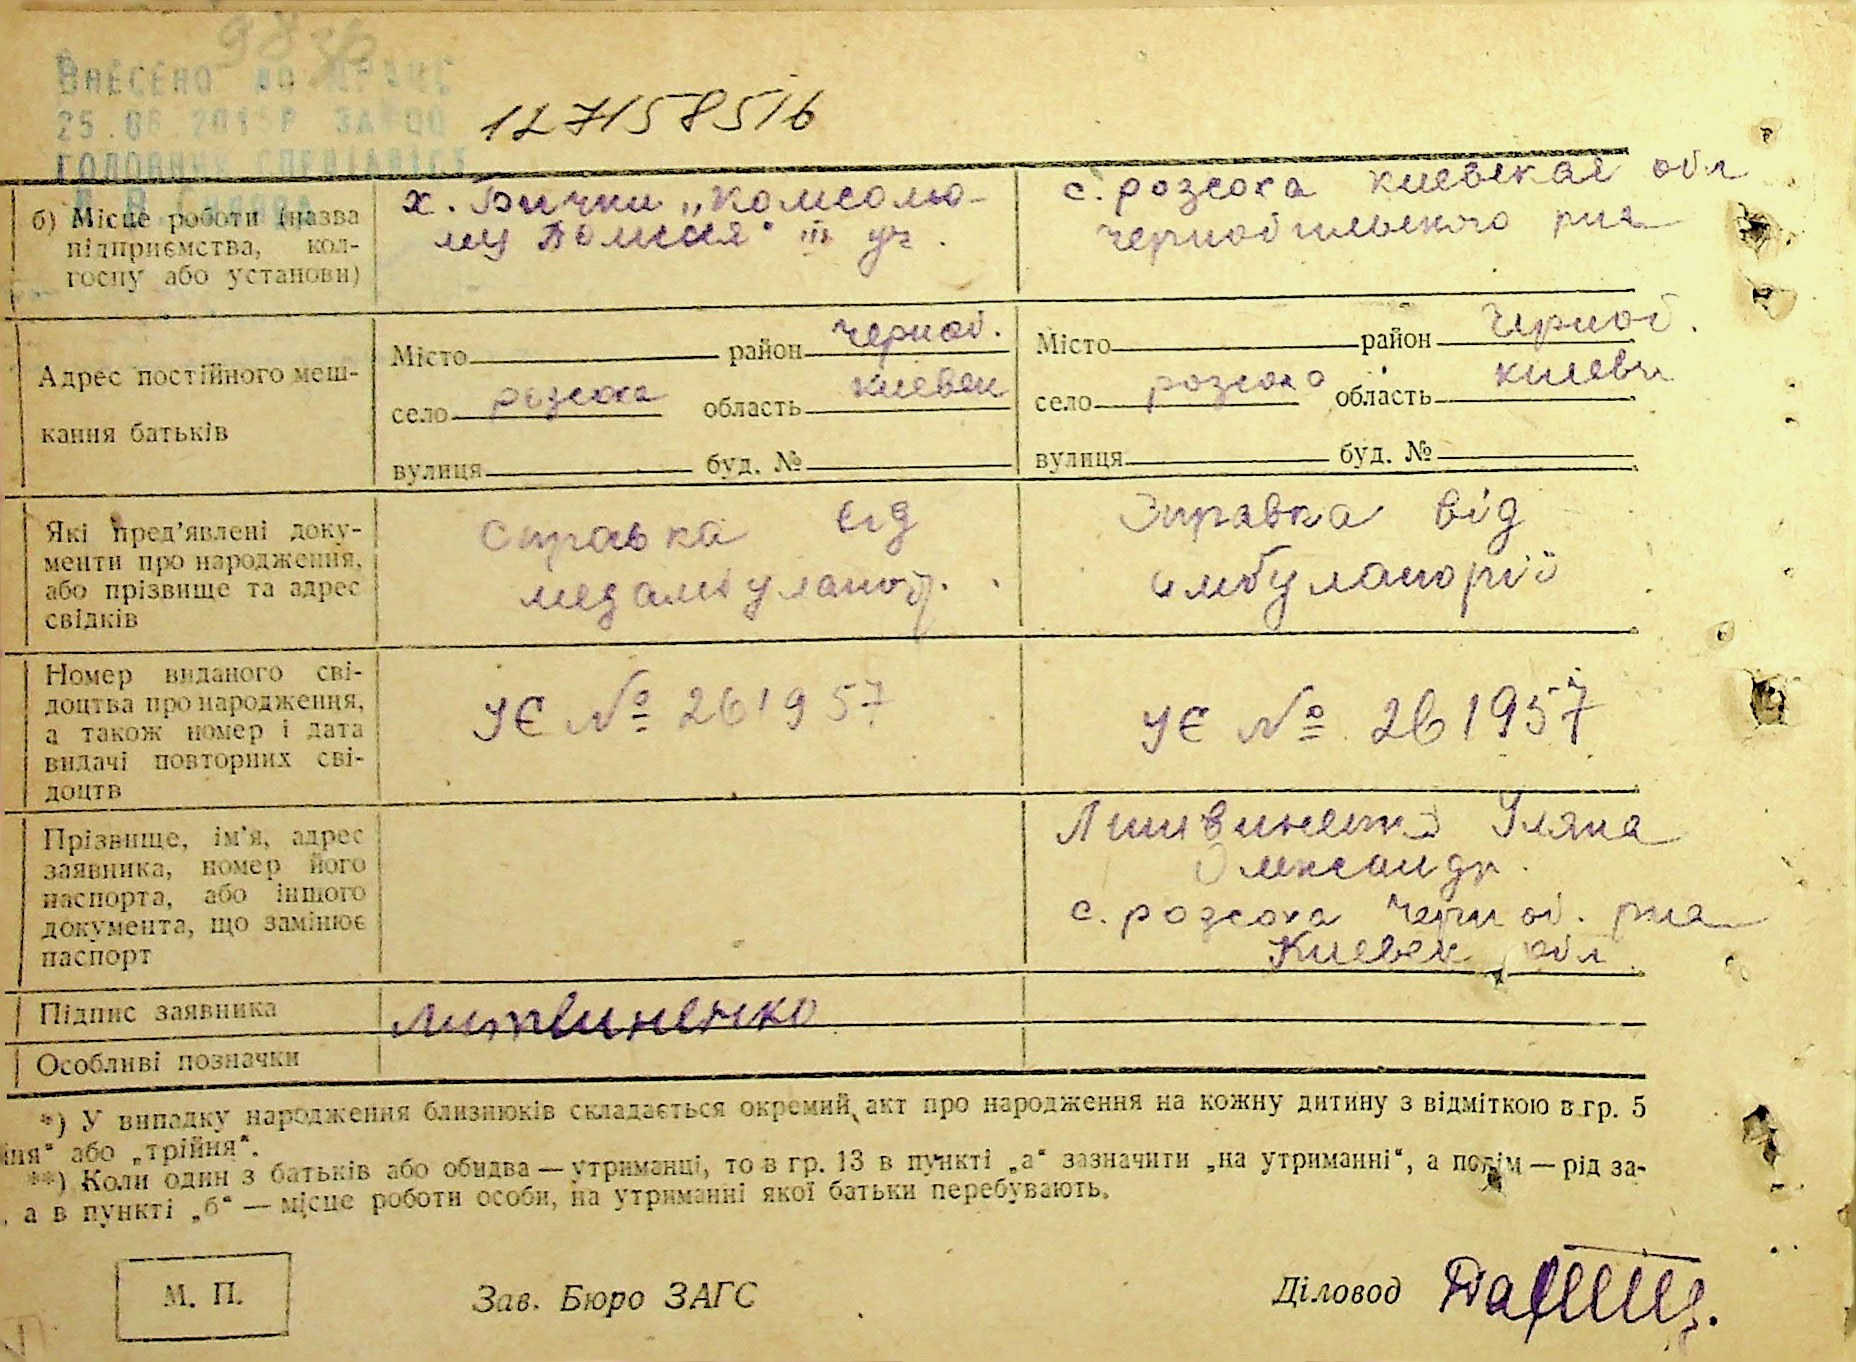 9836
ВНЕСЕНО ДО ДРАЦС
25.06.2015Р ЗАВОД
ГОЛОВНИЙ СПЕЦІАЛІСТ
127158516
б) Місце роботи (назва підприємства, кол-
госпу або установи)
х. Бички „Комсоло-
III уч.
с. розсоха киевская обл
чернобильского рна
Адрес постійного меш-
кання батьків
Місто район Черноб.
село розсоха область киевск
вулиця буд. №
Місто район Черноб.
село розсоха область киевск
вулиця буд. №
Які пред’явлені доку-
менти про народження,
або прізвище та адрес
свідків
Справка від
медамбулатор.
Зправка від
амбулаторії
Номер виданого сві-
доцтва про народження,
а також номер і дата
видачі повторних сві-
доцтв
УЄ № 261957
УЄ № 261957
Прізвище, ім’я, адрес
заявника, номер його
паспорта, або іншого
документа, що замінює
паспорт
Литвиненко Уляна
Олександр.
с. розсоха Черноб. рна
Киевск обл
Підпис заявника
Литвиненко
Особливі позначки
*) У випадку народження близнюків складається окремий акт про народження на кожну дитину з відміткою в гр. 5
йня“ або „трійня“.
**) Коли один з батьків або обидва — утриманці, то в гр. 13 в пункті „а“ зазначити „на утриманні“, а потім — рід за-
, а в пункті „б“ — місце роботи особи, на утриманні якої батьки перебувають.
М. П.
Зав. Бюро ЗАГС
Діловод